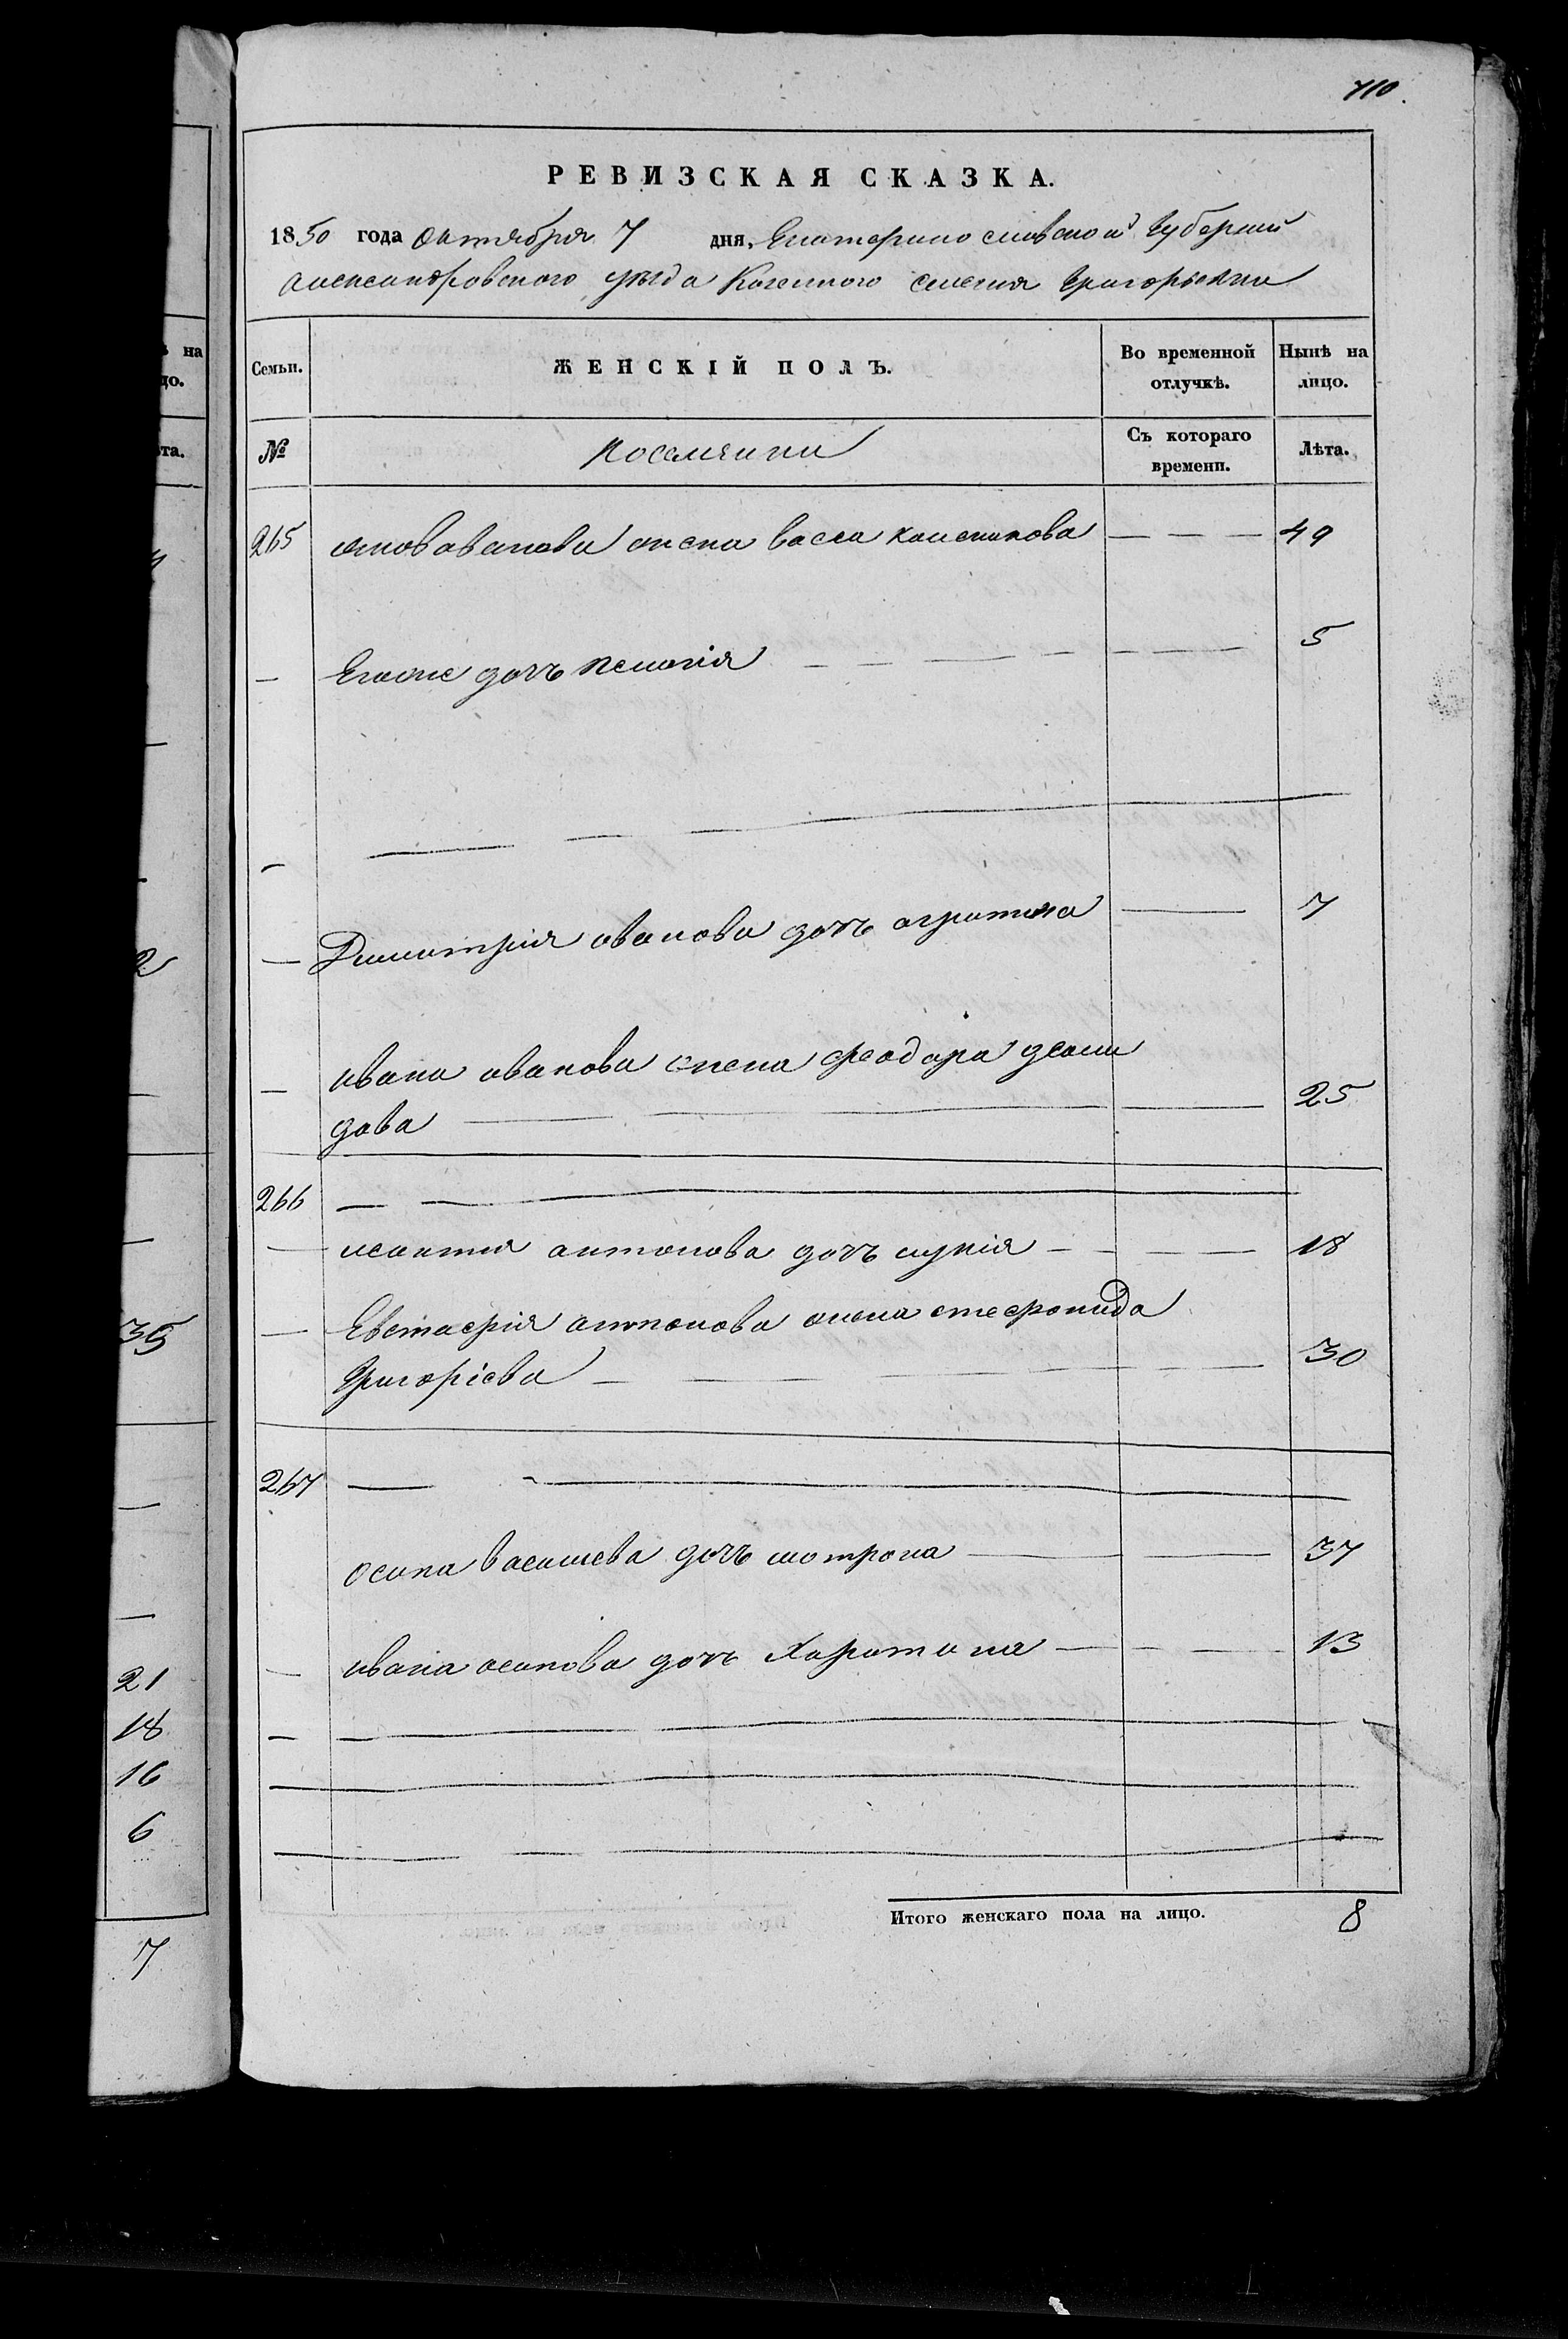 710.
РЕВИЗСКАЯ СКАЗКА.
1850 года октября 7 дня, Екатеринославской Губернии
Александровского уезда Казенного селения Григорьевки
Семьи. ЖЕНСКІЙ ПОЛЪ. Во временной отлучкѣ. Нынѣ на лицо.
№ Поселянки Съ котораго времени. Лѣта.
265 жена васса 49
— Егоже дочь пелагія — — — — — — — 5
—
— Димитрия иванова дочь агрипина — 7
— ивана иванова жена феодора деми
дова — — — 25
266 —
— леонтия антонова дочь лукія — — — — 18
— Евстафия антонова жена степонида
Григоріева — — — — 30
267 —
осипа васильева дочь мотрона — — 37
— ивана осипова дочь Харитина — — — 13
Итого женскаго пола на лицо. 8
на
цо.
та.
2
35
21
18
16
6
7